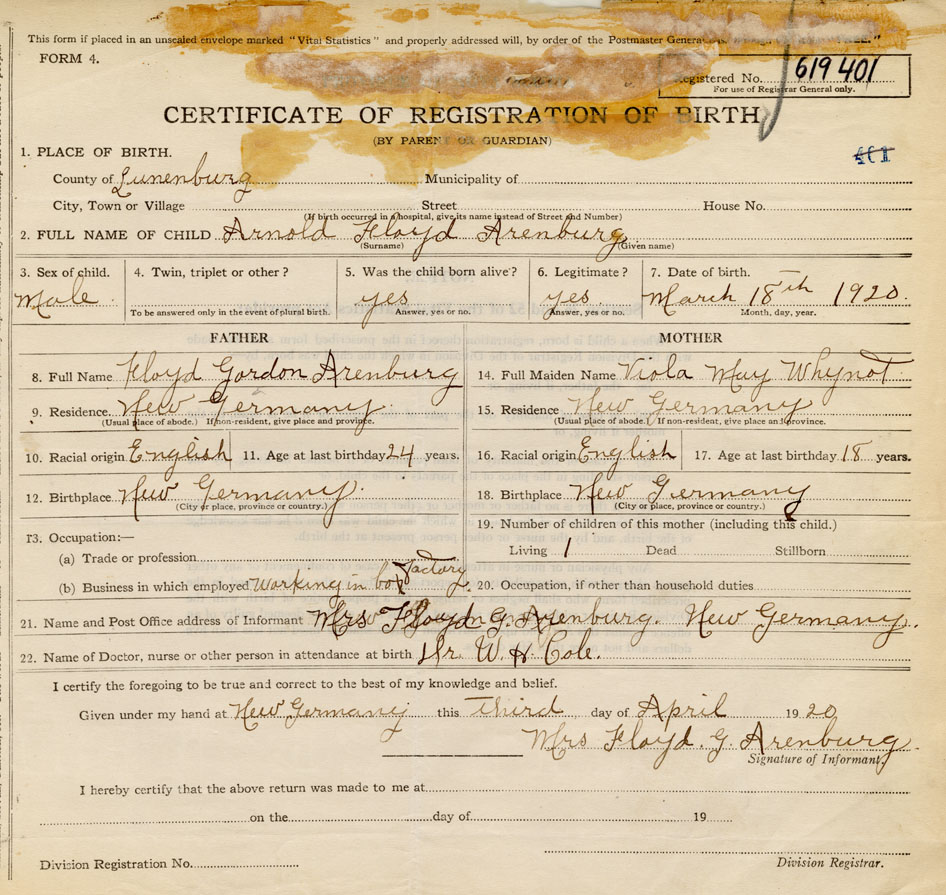 This form if placed in an unsealed envelope marked "Vital Statistics" and properly addressed will, by order of the Postmaster General
FORM 4.
Registered No. 619401
For use of Registrar General only.
CERTIFICATE OF REGISTRATION OF BIRTH
(BY PARENT OR GUARDIAN)
401
1. PLACE OF BIRTH.
County of Lunenburg Municipality of
City, Town or Village Street House No.
(If birth occurred in a hospital, give its name instead of Street and Number)
2. FULL NAME OF CHILD Arnold Floyd Arenburg
(Surname) (Given name)
3. Sex of child. 4. Twin, triplet or other? 5. Was the child born alive? 6. Legitimate? 7. Date of birth.
Male yes yes March 18th 1920.
To be answered only in the event of plural birth. Answer, yes or no. Answer, yes or no. Month, day, year.
FATHER MOTHER
8. Full Name Floyd Gordon Arenburg 14. Full Maiden Name Viola May Whynot
9. Residence. New Germany 15. Residence New Germany
(Usual place of abode.) If non-resident, give place and province. (Usual place of abode.) If non-resident, give place and province.
10. Racial origin English 11. Age at last birthday 24 years. 16. Racial origin English 17. Age at last birthday 18 years.
12. Birthplace New Germany. 18. Birthplace New Germany
(City or place, province or country.) (City or place, province or country.)
13. Occupation:— 19. Number of children of this mother (including this child.)
(a) Trade or profession Living 1 Dead Stillborn
(b) Business in which employed Working in box factory. 20. Occupation, if other than household duties
21. Name and Post Office address of Informant Mrs Floyd G. Arenburg. New Germany.
22. Name of Doctor, nurse or other person in attendance at birth Dr. W. H. Cole.
I certify the foregoing to be true and correct to the best of my knowledge and belief.
Given under my hand at New Germany this third day of April 1920
Mrs Floyd. G. Arenburg.
Signature of Informant
I hereby certify that the above return was made to me at
on the day of 19
Division Registration No. Division Registrar.